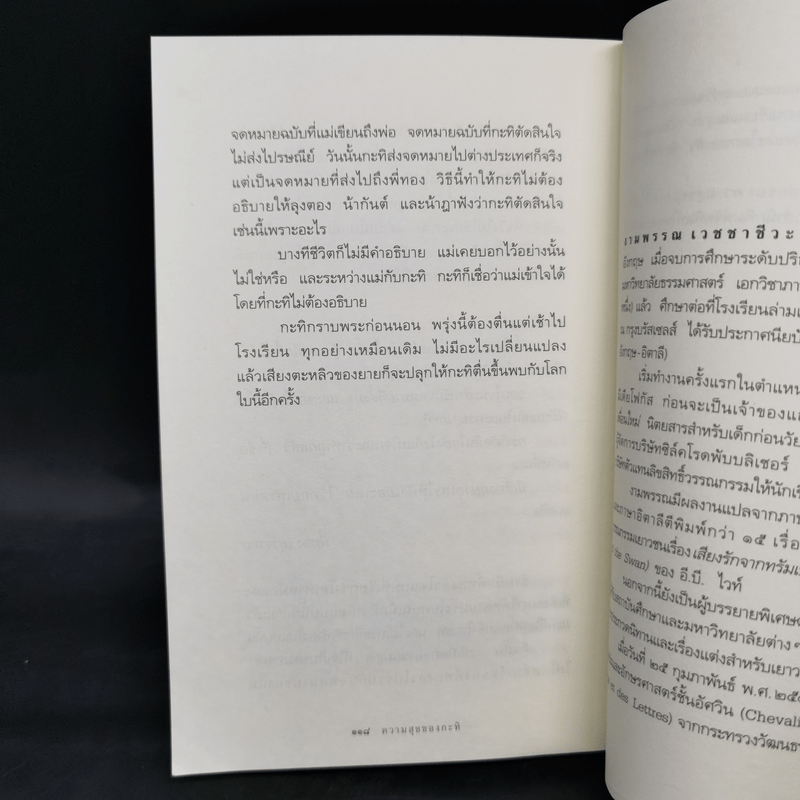 จดหมายฉบับที่แม่เขียนถึงพ่อ จดหมายฉบับที่กะทิตัดสินใจ
ไม่ส่งไปรษณีย์ วันนั้นกะทิส่งจดหมายไปต่างประเทศก็จริง
แต่เป็นจดหมายที่ส่งไปถึงพี่ทอง วิธีนี้ทำให้กะทิไม่ต้อง
อธิบายให้ลุงตอง น้ากันต์ และน้าฎาฟังว่ากะทิตัดสินใจ
เช่นนี้เพราะอะไร
บางทีชีวิตก็ไม่มีคำอธิบาย แม่เคยบอกไว้อย่างนั้น
ไม่ใช่หรือ และระหว่างแม่กับกะทิ กะทิก็เชื่อว่าแม่เข้าใจได้
โดยที่กะทิไม่ต้องอธิบาย
กะทิกราบพระก่อนนอน พรุ่งนี้ต้องตื่นแต่เช้าไป
โรงเรียน ทุกอย่างเหมือนเดิม ไม่มีอะไรเปลี่ยนแปลง
แล้วเสียงตะหลิวของยายก็จะปลุกให้กะทิตื่นขึ้นพบกับโลก
ใบนี้อีกครั้ง
๑๑๘ ความสุขของกะทิ
งามพรรณ เวชชาชีวะ
อังกฤษ เมื่อจบการศึกษาระดับปริ
มหาวิทยาลัยธรรมศาสตร์ เอกวิชาภา
หนึ่ง) แล้ว ศึกษาต่อที่โรงเรียนล่ามแ
ณ กรุงบรัสเซลส์ ได้รับประกาศนียบั
อังกฤษ-อิตาลี)
เริ่มทำงานครั้งแรกในตำแหน
มีเดียโฟกัส ก่อนจะเป็นเจ้าของแล
เพื่อนใหม่ นิตยสารสำหรับเด็กก่อนวัย
ผู้จัดการบริษัทซิล์คโรดพับบลิเชอร์
ษัทตัวแทนลิขสิทธิ์วรรณกรรมให้นักเขี
งามพรรณมีผลงานแปลจากภา
ละภาษาอิตาลีตีพิมพ์กว่า ๑๕ เรื่อ
รรณกรรมเยาวชนเรื่อง เสียงรักจากทรัมเ
the Swan) ของ อี.บี. ไวท์
นอกจากนี้ยังเป็นผู้บรรยายพิเศษ
สถาบันศึกษาและมหาวิทยาลัยต่างๆ
ระกวดนิทานและเรื่องแต่งสำหรับเยาว
เมื่อวันที่ ๒๕ กุมภาพันธ์ พ.ศ.๒๕๔
ละอักษรศาสตร์ชั้นอัศวิน (Chevali
des Lettres) จากกระทรวงวัฒนธ